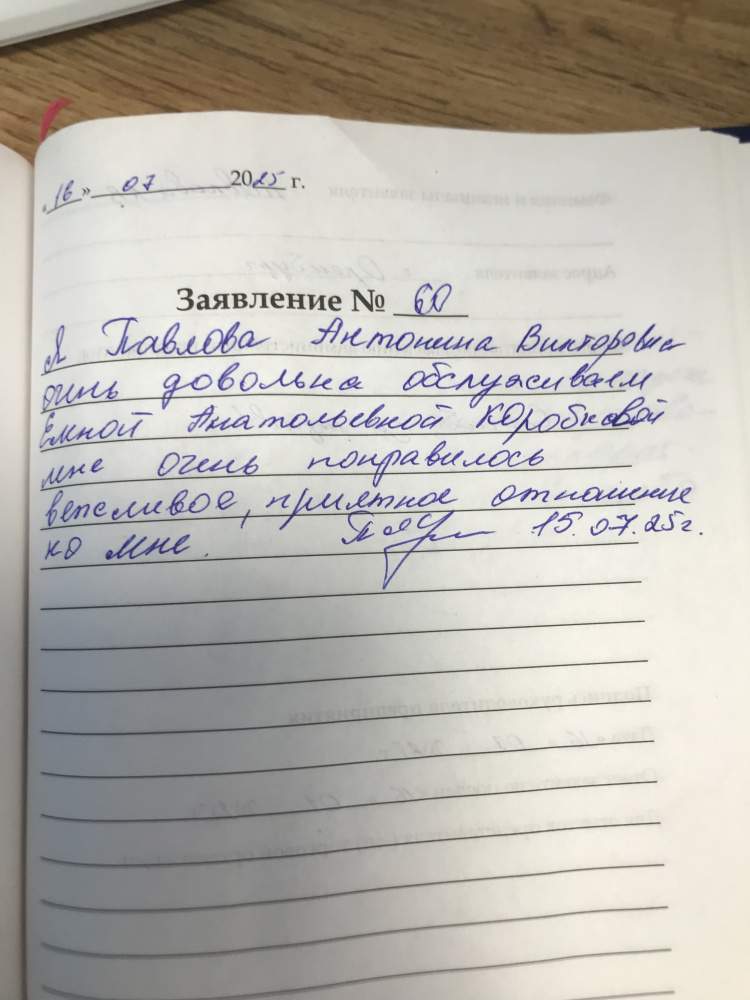 «16» 07 2025 г.
Заявление № 60
Я Павлова Антонина Викторовна
очень довольна обслуживаем
Еленой Анатольевной Коробковой
мне очень понравилось
вежливое, приятное отношение
ко мне. 15.07.25г.